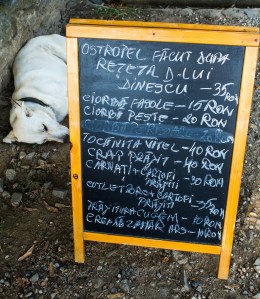 OSTROPEL FĂCUT DUPĂ
REȚETA D-LUI
DINESCU - 35 RON
CIORBĂ FASOLE - 15 RON
CIORBĂ PEȘTE - 20 RON
TOCĂNIȚĂ VIȚEL - 40 RON
CRAP PRĂJIT - 40 RON
CÂRNAȚI + CARTOFI - 30 RON
PRĂJIȚI
COTLET PORC + CARTOFI - 35 RON
PRĂJIȚI
PRĂJITURA CU GEM - 10 RON
CREMĂ ZAHĂR ARS, 10 RON